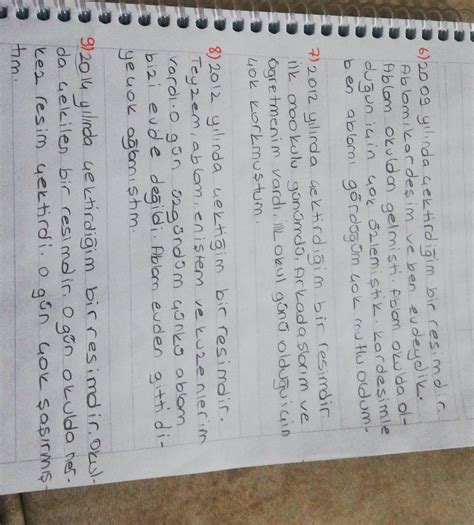 6) 2009 yılında çektirdiğim bir resimdir.
Ablam, kardeşim ve ben evdeydik.
Ablam okuldan gelmişti. Ablam okulda ol-
duğun için çok özlemiştik. Kardeşimle
ben ablamı gördüğüm çok mutlu oldum.
7) 2012 yılında çektirdiğim bir resimdir
ilk okulu günümdü. Arkadaslarım ve
öğretmenim vardı. ilk okul günü olduğu için
çok korkmuştum.
8) 2012 yılında çektiğim bir resimdir.
Teyzem, ablam, enistem ve kuzenlerim
vardı. O gün üzgündüm çünkü ablam
bizi evde değildi. Ablam evden gitti di-
ye çok ağlamıştım.
9) 2014 yılında çektirdiğim bir resimdir. Okul-
da çekilen bir resimdir. O gün okulda her-
kez resim çektirdi. O gün çok şaşırmış-
tım.